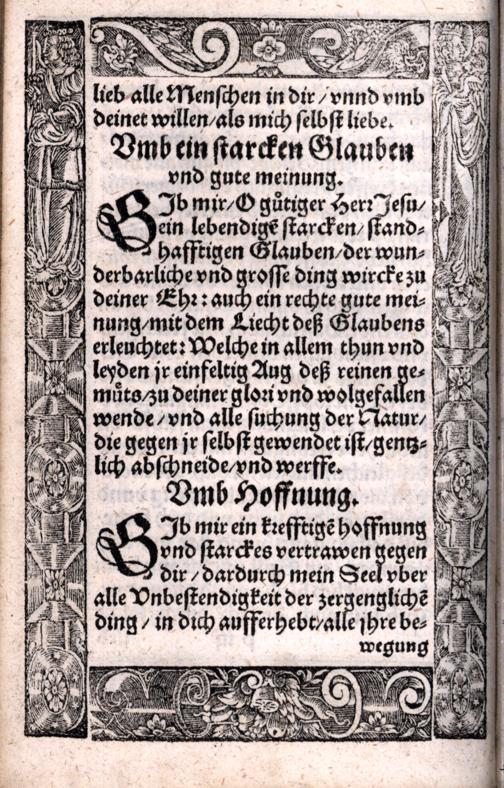 lieb alle Menschen in dir / vnnd vmb
deinet willen / als mich selbst liebe.
Vmb ein starcken Glauben
vnd gute meinung.
GIb mir / O gůtiger Herr Jesu /
ein lebendigẽ starcken / stand-
hafftigen Glauben / der wun-
derbarliche vnd grosse ding wircke zu
deiner Ehr: auch ein rechte gute mei-
nung / mit dem Liecht deß Glaubens
erleuchtet: Welche in allem thun vnd
leyden jr einfeltig Aug deß reinen ge-
můts / zu deiner glori vnd wolgefallen
wende / vnd alle suchung der Natur /
die gegen jr selbst gewendet ist / gentz-
lich abschneide / vnd werffe.
Vmb Hoffnung.
GIb mir ein krefftigẽ hoffnung
vnd starckes vertrawen gegen
dir / dardurch mein Seel vber
alle Vnbestendigkeit der zergenglichẽ
ding / in dich aufferhebt / alle jhre be-
wegung